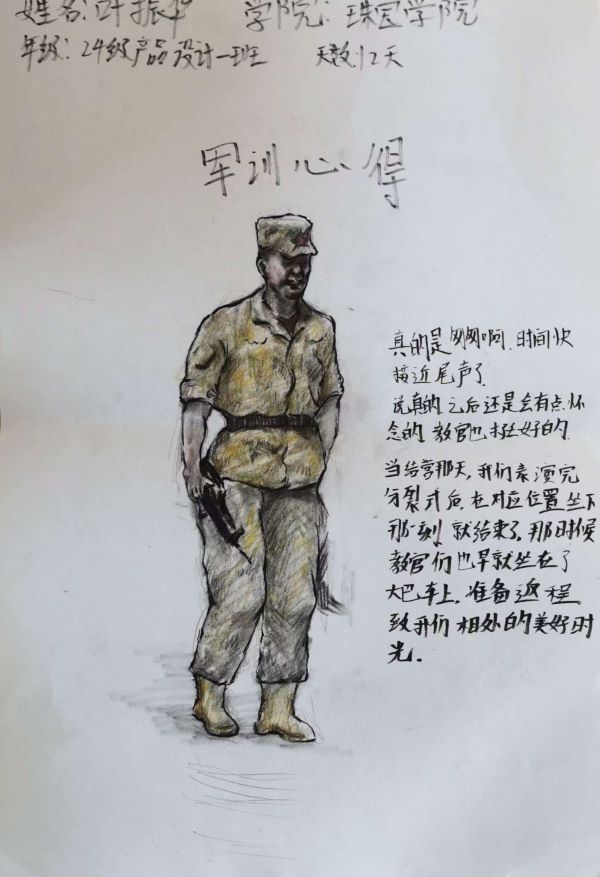 姓名:叶振华 学院:珠宝学院
年级:24级产品设计一班 天数:12天
军训心得
真的是匆匆啊.时间快
接近尾声了
说真的 之后还是会有点怀
念的 教官也挺好的.
当结营那天,我们表演完
分裂式后,在对应位置坐下
那一刻 就结束了,那时候
教官们也早就坐在了
大巴车上.准备返程
致我们相处的美好时
光.